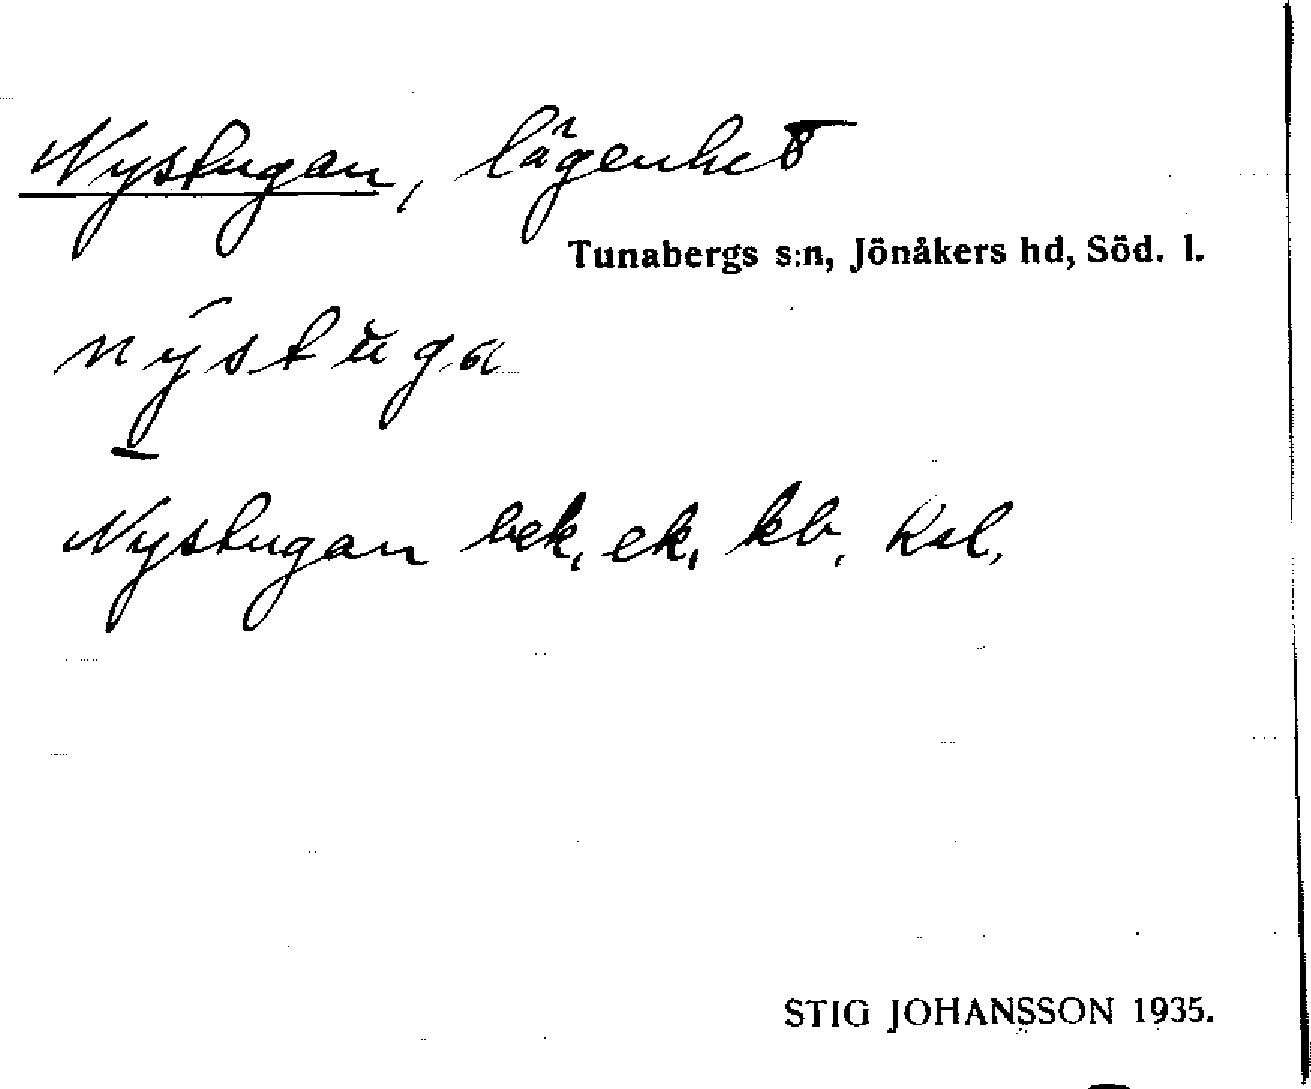 Nystugan, lägenhet
Tunabergs s:n, Jönåkers hd, Söd. l.
nýstùga
Nystugan bek, ek, kb, Ksl,
STIG JOHANSSON 1935.